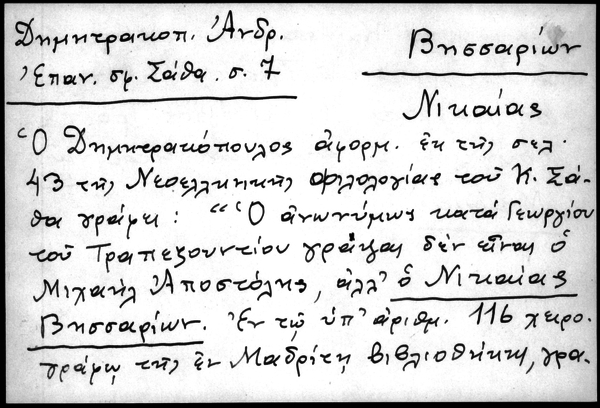 Δημητρακοπ. Ἀνδρ.
Ἐπαν. σφ. Σάθα. σ. 7
Βησσαρίων
Νικαίας
Ὁ Δημητρακόπουλος ἀφορμ. ἐκ τῆς σελ.
43 τῆς Νεοελληνικῆς φιλολογίας τοῦ Κ. Σά-
θα γράφει : "Ὁ ἀνωνύμως κατά Γεωργίου
τοῦ Τραπεζουντίου γράψας δέν εἶναι ὁ
Μιχαήλ Ἀποστόλης, ἀλλ' ὁ Νικαίας
Βησσαρίων. Ἐν τῷ ὑπ' ἀριθμ. 116 χειρο-
γράφῳ τῆς ἐν Μαδρίτῃ βιβλιοθήκης, γρα-